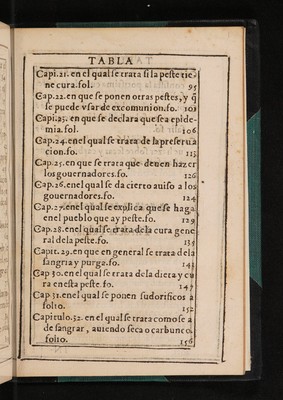 TABLA
Capi.21. en el qual se trata si la peste tie
ne cura. fol. 95
Cap.22. en que se ponen otras pestes, y q̃
se puede vsar de excomunion. fo. 101
Capi.23. en que se declara que sea epide-
mia. fol. 106
Cap.24. enel qual se trata de la preserua
cion. fo. 113
Cap.25. en que se trata que deuen hazer
los gouernadores. fo. 126
Cap.26. enel qual se da cierto auiso a los
gouernadores. fo. 124
Cap.27. enel qual se explica que se haga
en el pueblo que ay peste. fo. 129
Cap.28. enel qual se trata de la cura gene
ral de la peste. fo. 135
Capit.29. en que en general se trata de la
sangria y purga. fo. 141
Cap 30. enel qual se trata de la dieta y cu
ra en esta peste. fo. 147
Cap.31. enel qual se ponen sudorificos a
folio. 152
Capitulo.32. en el qual se trata como se a
de sangrar, auiendo seca o carbunco.
folio. 156